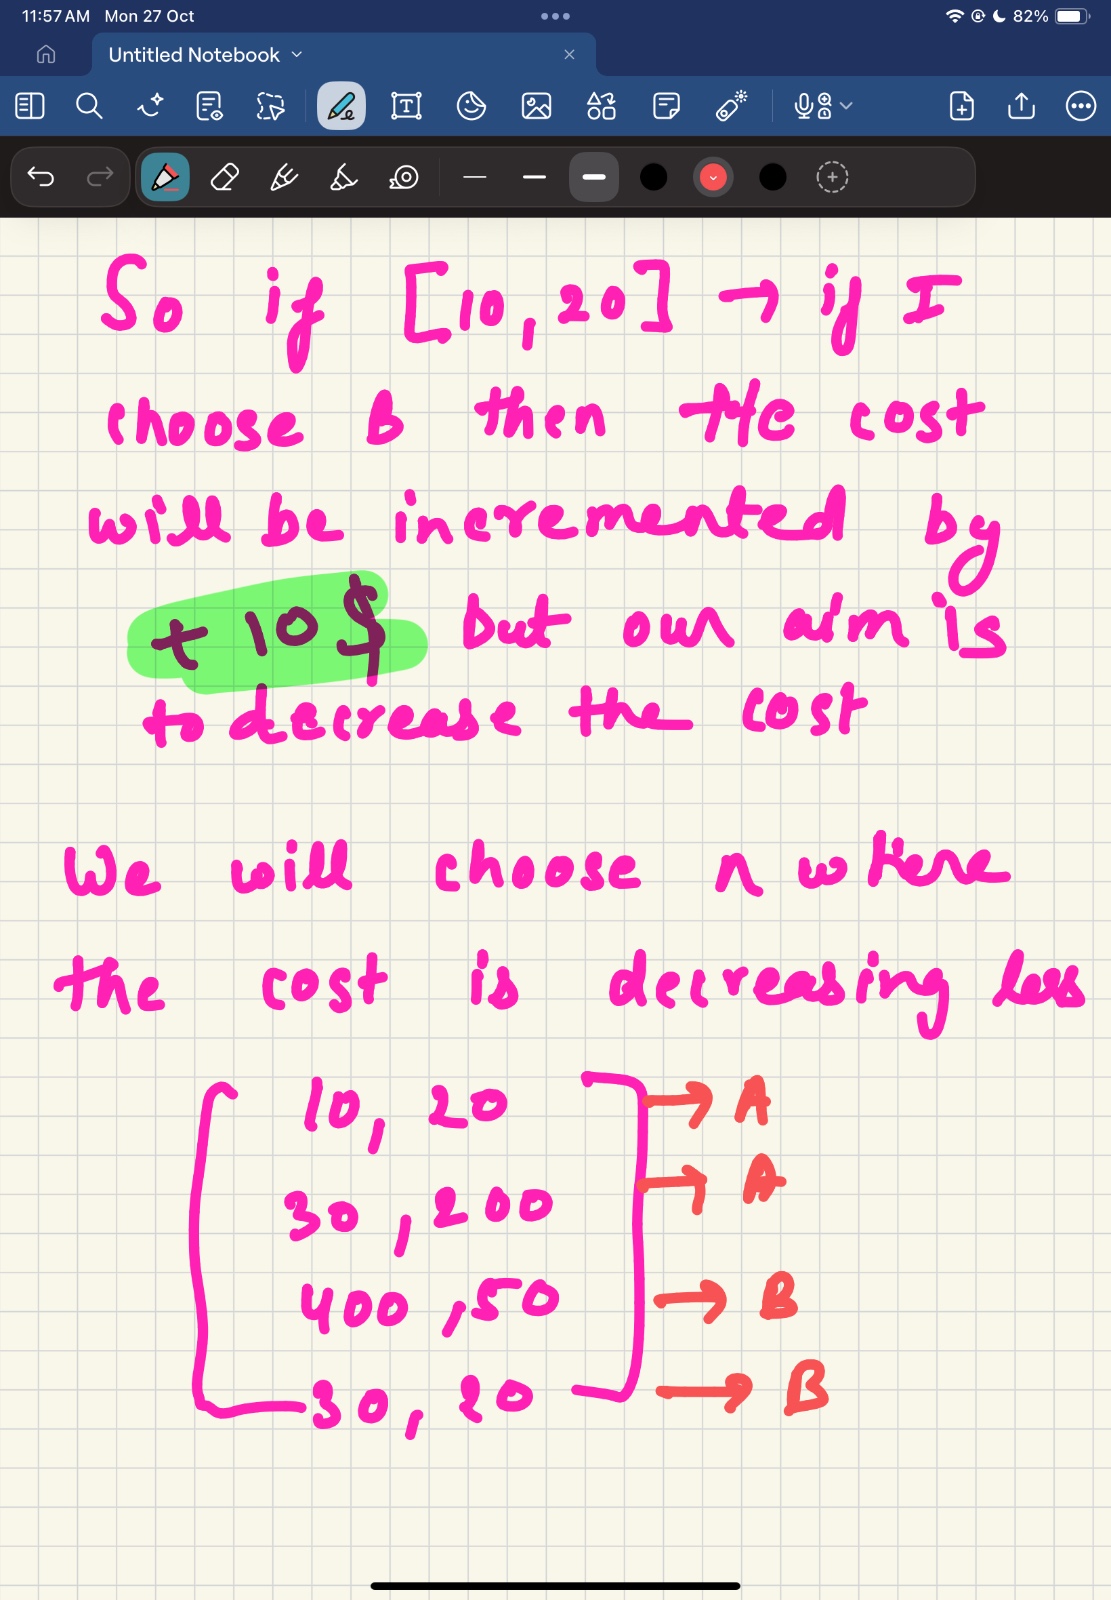 11:57 AM Mon 27 Oct
82%
Untitled Notebook
So if [10, 20] → if I
choose B then the cost
will be incremented by
+ 10 $ but our aim is
to decrease the cost
We will choose n where
the cost is decreasing less
10, 20 → A
30, 200 → A
400, 50 → B
30, 20 → B